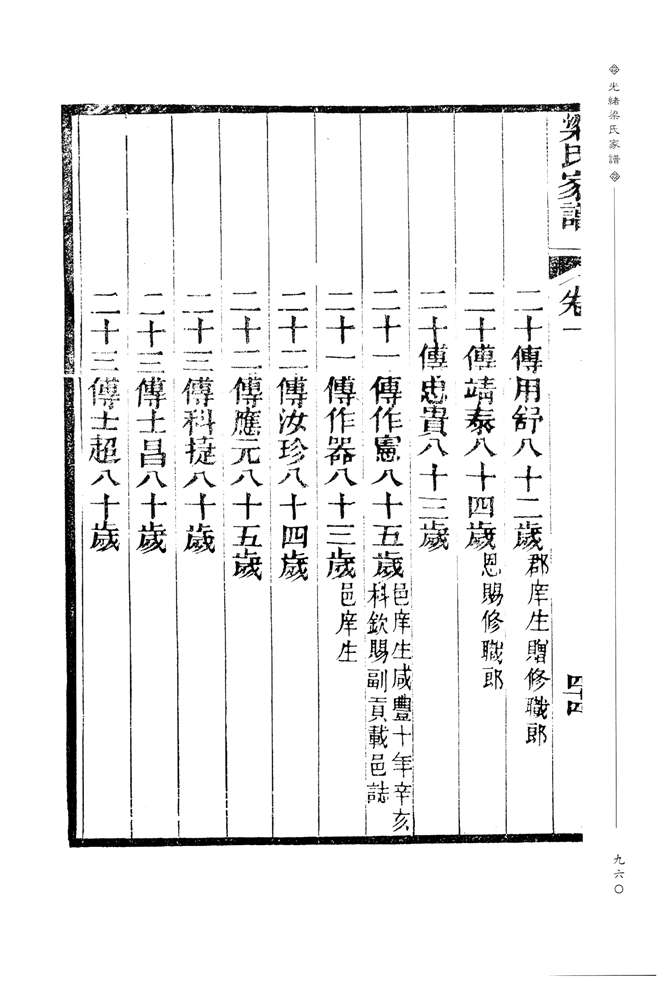 光緒梁氏家譜
九六〇
梁氏家譜
卷一
四十四
二十傳用舒八十二歲 郡庠生贈修職郎
二十傳靖泰八十四歲 恩賜修職郎
二十傳忠貴八十三歲
二十一傳作憲八十五歲 邑庠生咸豐十年辛亥
科欽賜副貢載邑誌
二十一傳作器八十三歲 邑庠生
二十二傳汝珍八十四歲
二十二傳應元八十五歲
二十三傳科捷八十歲
二十三傳士昌八十歲
二十三傳士超八十歲